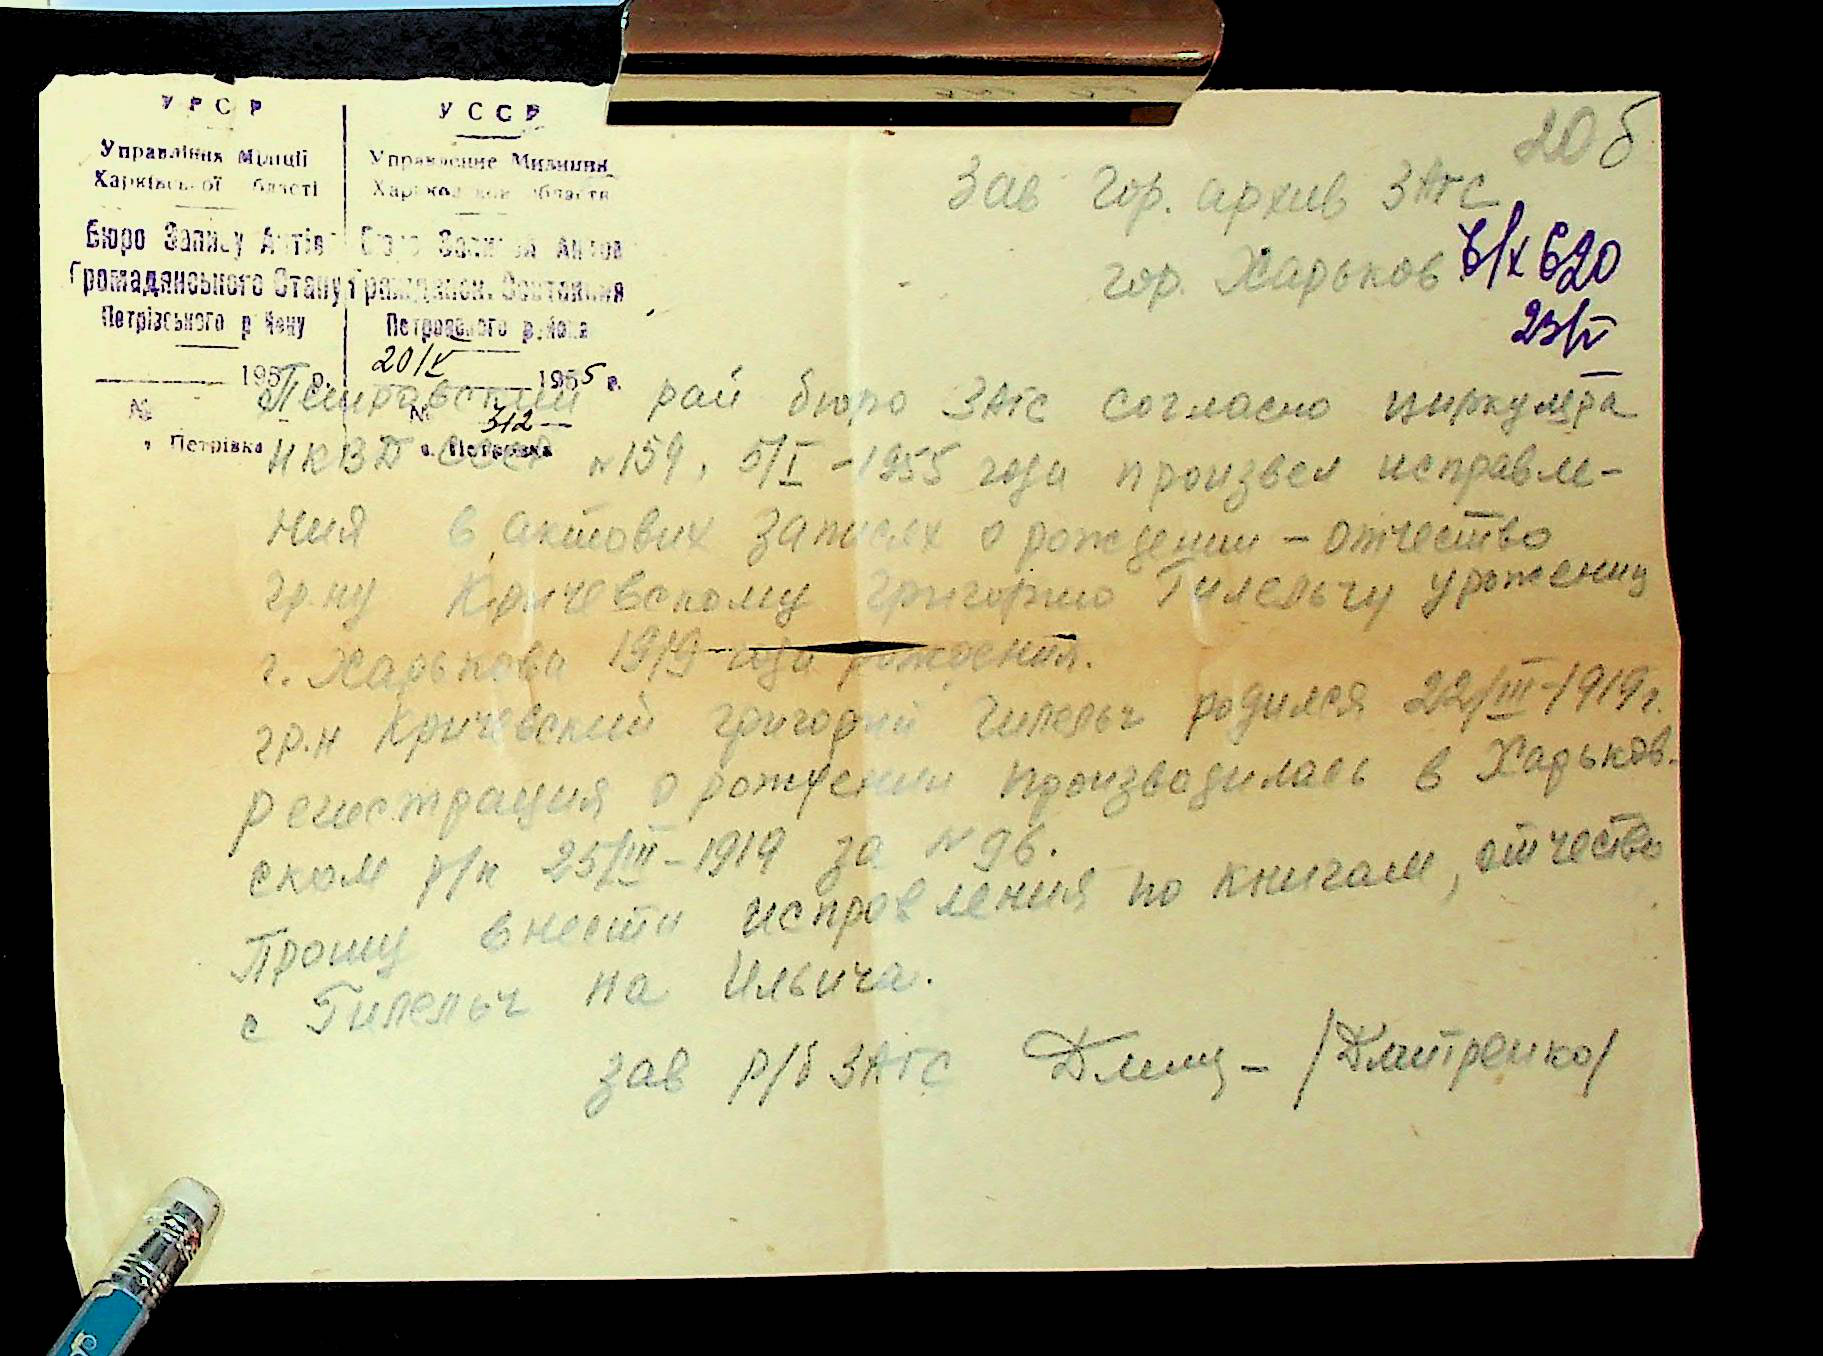 УРСР
Управління Міліції
Харківської області
Бюро Запису Актів
Громадянського Стану
Петрівського району
195 р.
№
с. Петрівка
УССР
Управление Милиции
Харьковской области
Бюро Записей Актов
Гражданск. Состояния
Петровского района
20/V 1955 г.
№ 312
с. Петровка
20б
Зав гор. архив ЗАГС
гор. Харьков
620
23/V
Петровский рай бюро ЗАГС согласно циркуляра
НКВД СССР №159, 5/I-1955 года произвел исправле-
ния в актових записях о рождении - отчество
гр.ну Кричевскому Григорию Гилельчу урожениц
г. Харькова 1919 года рождения.
гр.н Кричевский григорий Гилельч родился 22/III-1919г.
Регистрация о рождении производилась в Харьков-
ском р/н 25/III-1919 за №96.
Прошу внести исправления по книгам, отчество
с Гилельч на Ильича.
зав р/б ЗАГС /Дмитренко/